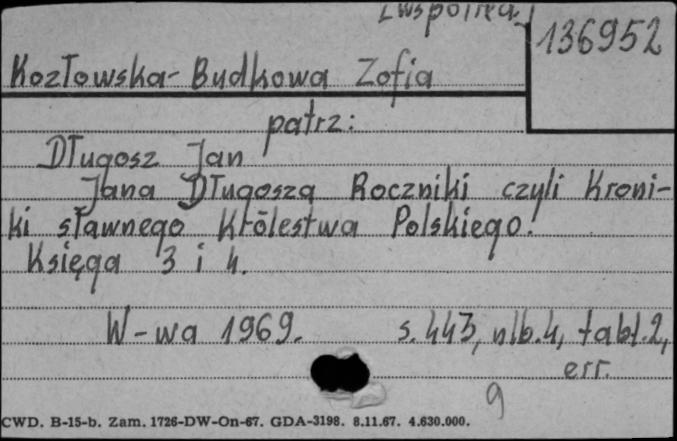 współred.
136952
Kozłowska-Budkowa Zofia
patrz:
Długosz Jan
Jana Długosza Roczniki czyli Kroni-
ki sławnego Królestwa Polskiego.
Księga 3 i 4.
W-wa 1969. s. 443, nlb. 4, tabl. 2,
err.
9
CWD. B-15-b. Zam. 1726-DW-On-67. GDA-3198. 8.11.67. 4.630.000.